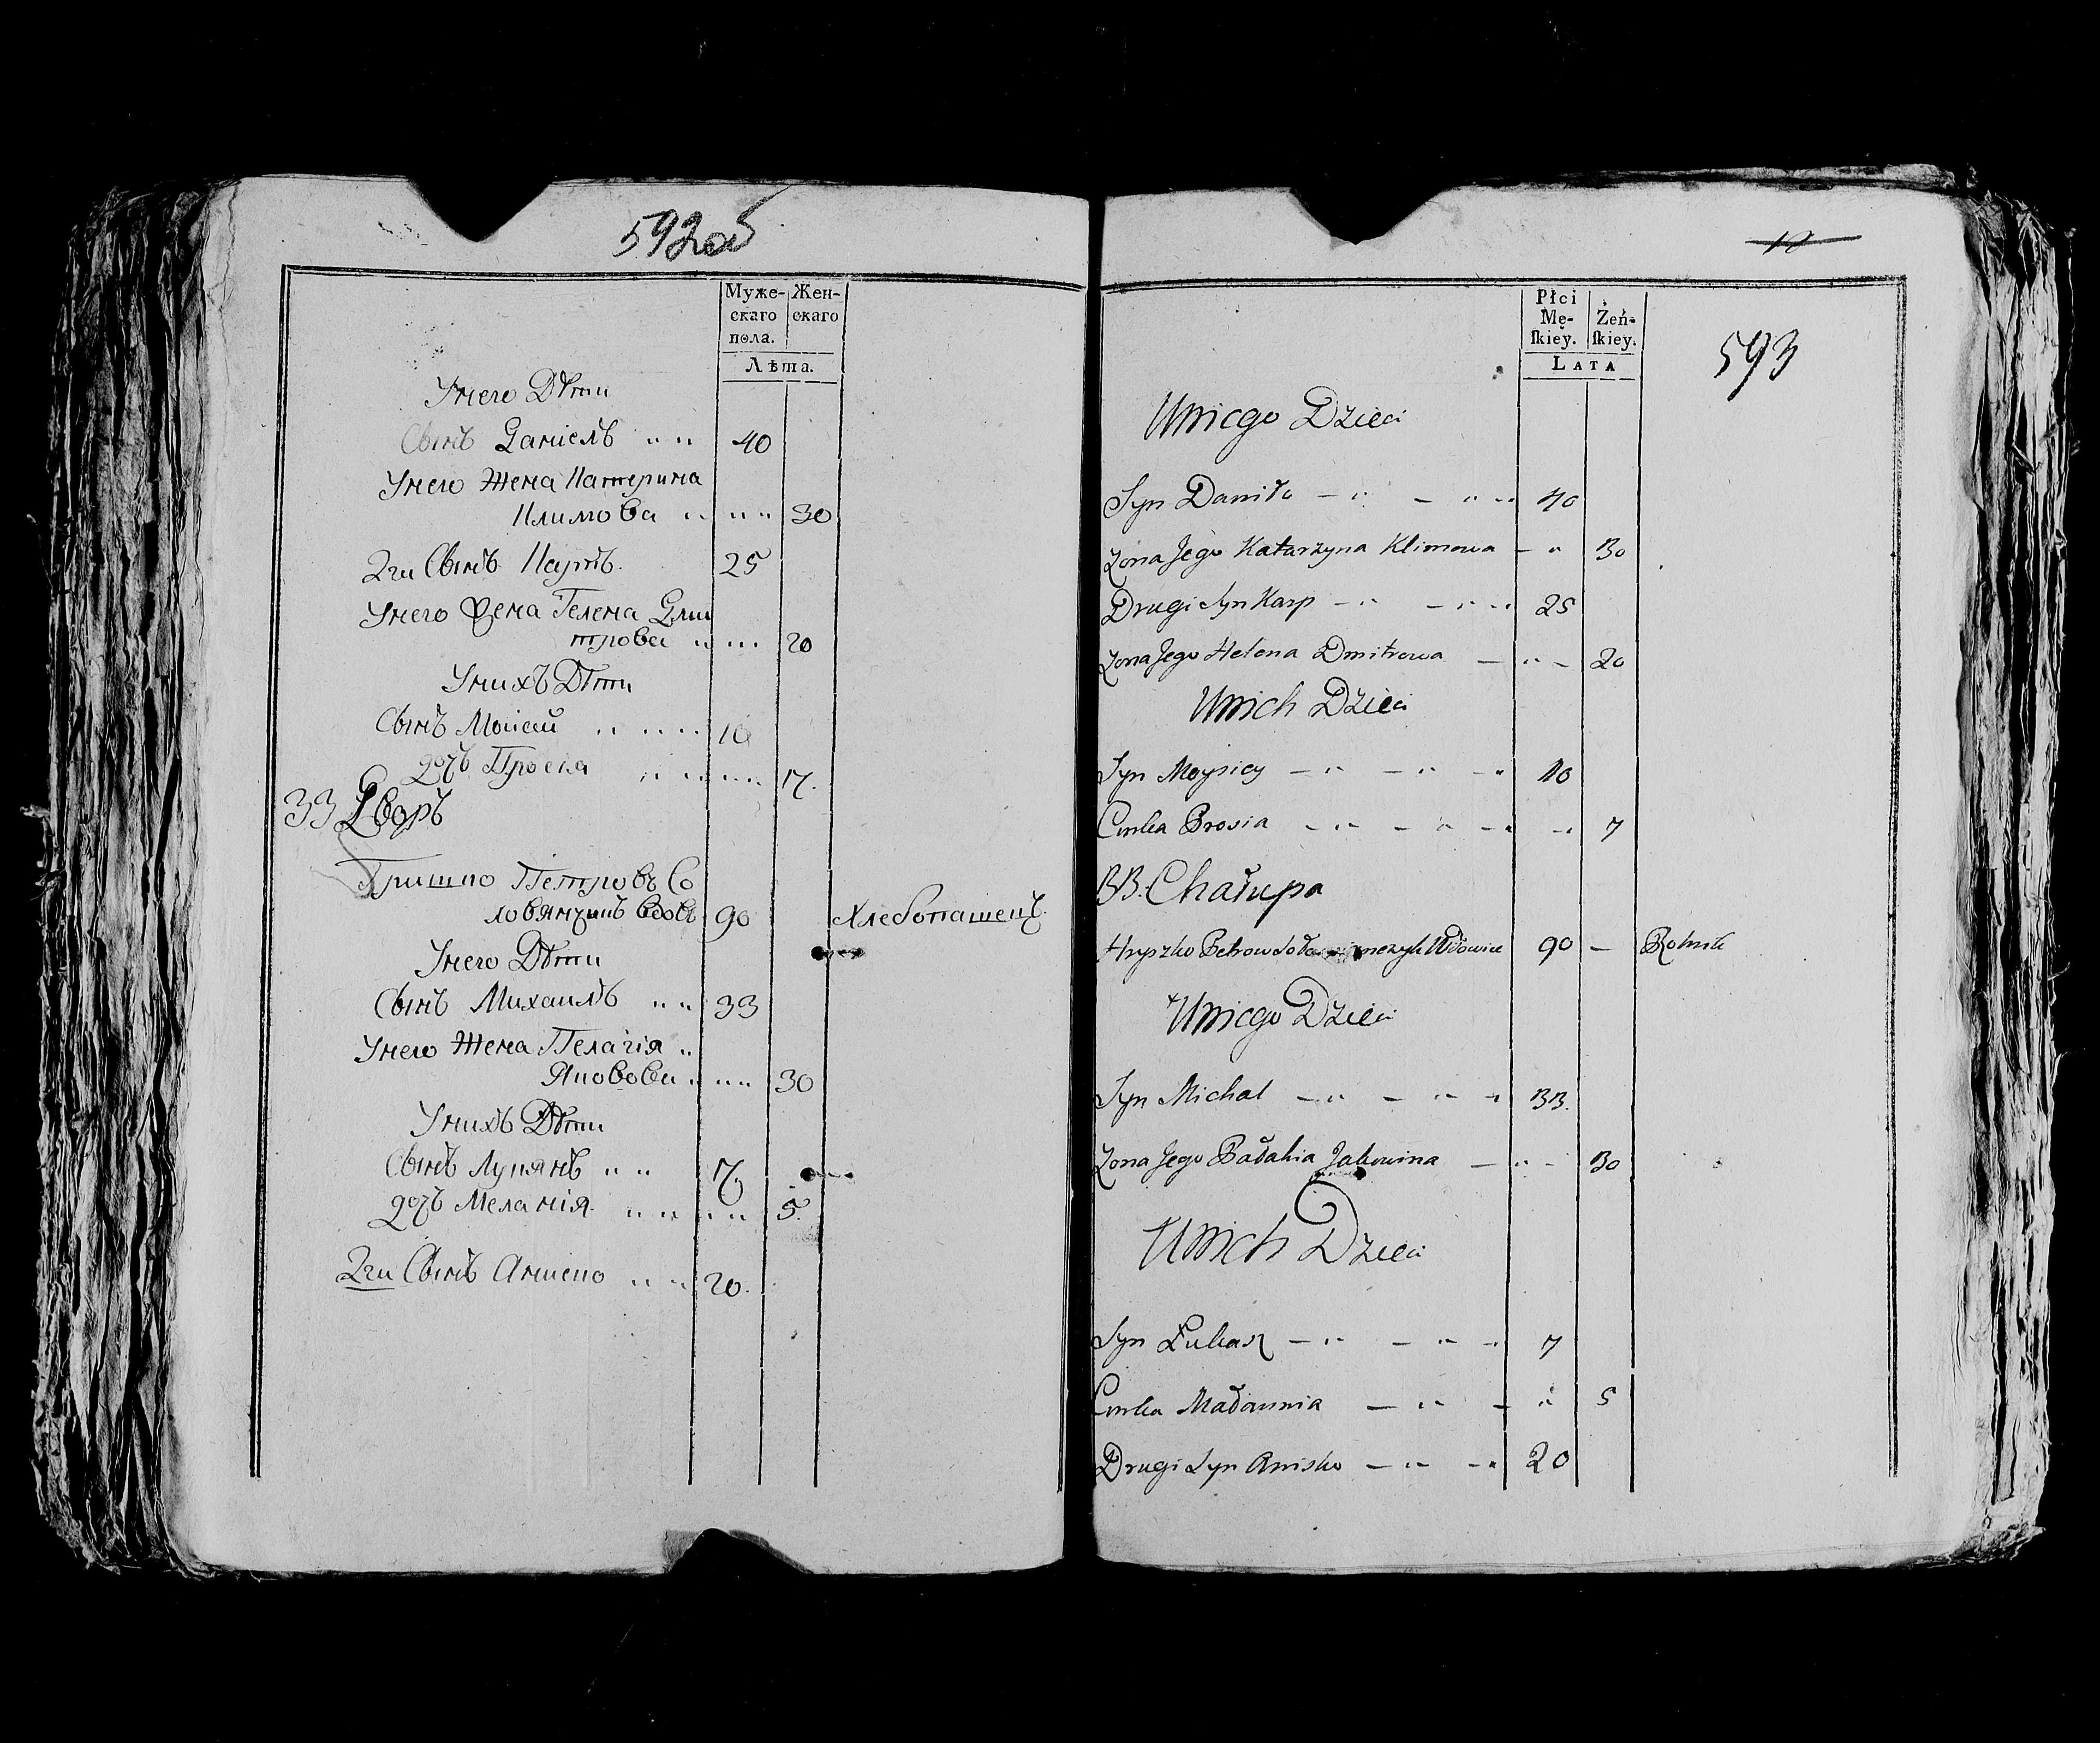 592об
Муже-
скаго
пола.
Жен-
скаго
Лѣта.
Унего Дѣти
Сынъ Даніелъ " " 40
Унего Жена Катерина
Климова " " " 30
2ги Сынъ Карпъ. 25
Унего Жена Гелена Дми
трова " " " 20
Унихъ Дѣти
Сынъ Мойсей " " " 10
дочъ Проска " " " 7.
33 Дворъ
Гришко Петровъ Со
ловянчикъ вдовъ 90 Хлебопашецъ.
Унего Дѣти
Сынъ Михаилъ " " 33
Унего Жена Пелагія "
Яковова " " " 30
Унихъ Дѣти
Сынъ Лукянъ " " 7
дочъ Меланія. " " " " 5.
2ги Сынъ Аниско " " 20.
12
Płci
Mę-
skiey.
Żeń-
skiey.
LATA
593
Uniego Dzieci
Syn Daniło — " — " " 40
Zona Jego Katarzyna Klimowa — " 30
Drugi Syn Karp — " — " " 25
Zona Jego Helena Dmitrowa — " — 20
Unich Dzieci
Syn Moysiey — " — " — " 10
Curka Prosia — " — — " — " — " 7
33. Chałupa
Hryszko Petrow Wdowiec 90 — Rolnik
Uniego Dzieci
Syn Michał — " — " " 33.
Zona Jego Pałahia Jakowina — " — 30
Unich Dzieci
Syn Łukasz — " — " — " 7
Curka Małannia — " — " 5
Drugi Syn Anisko — " — — " 20